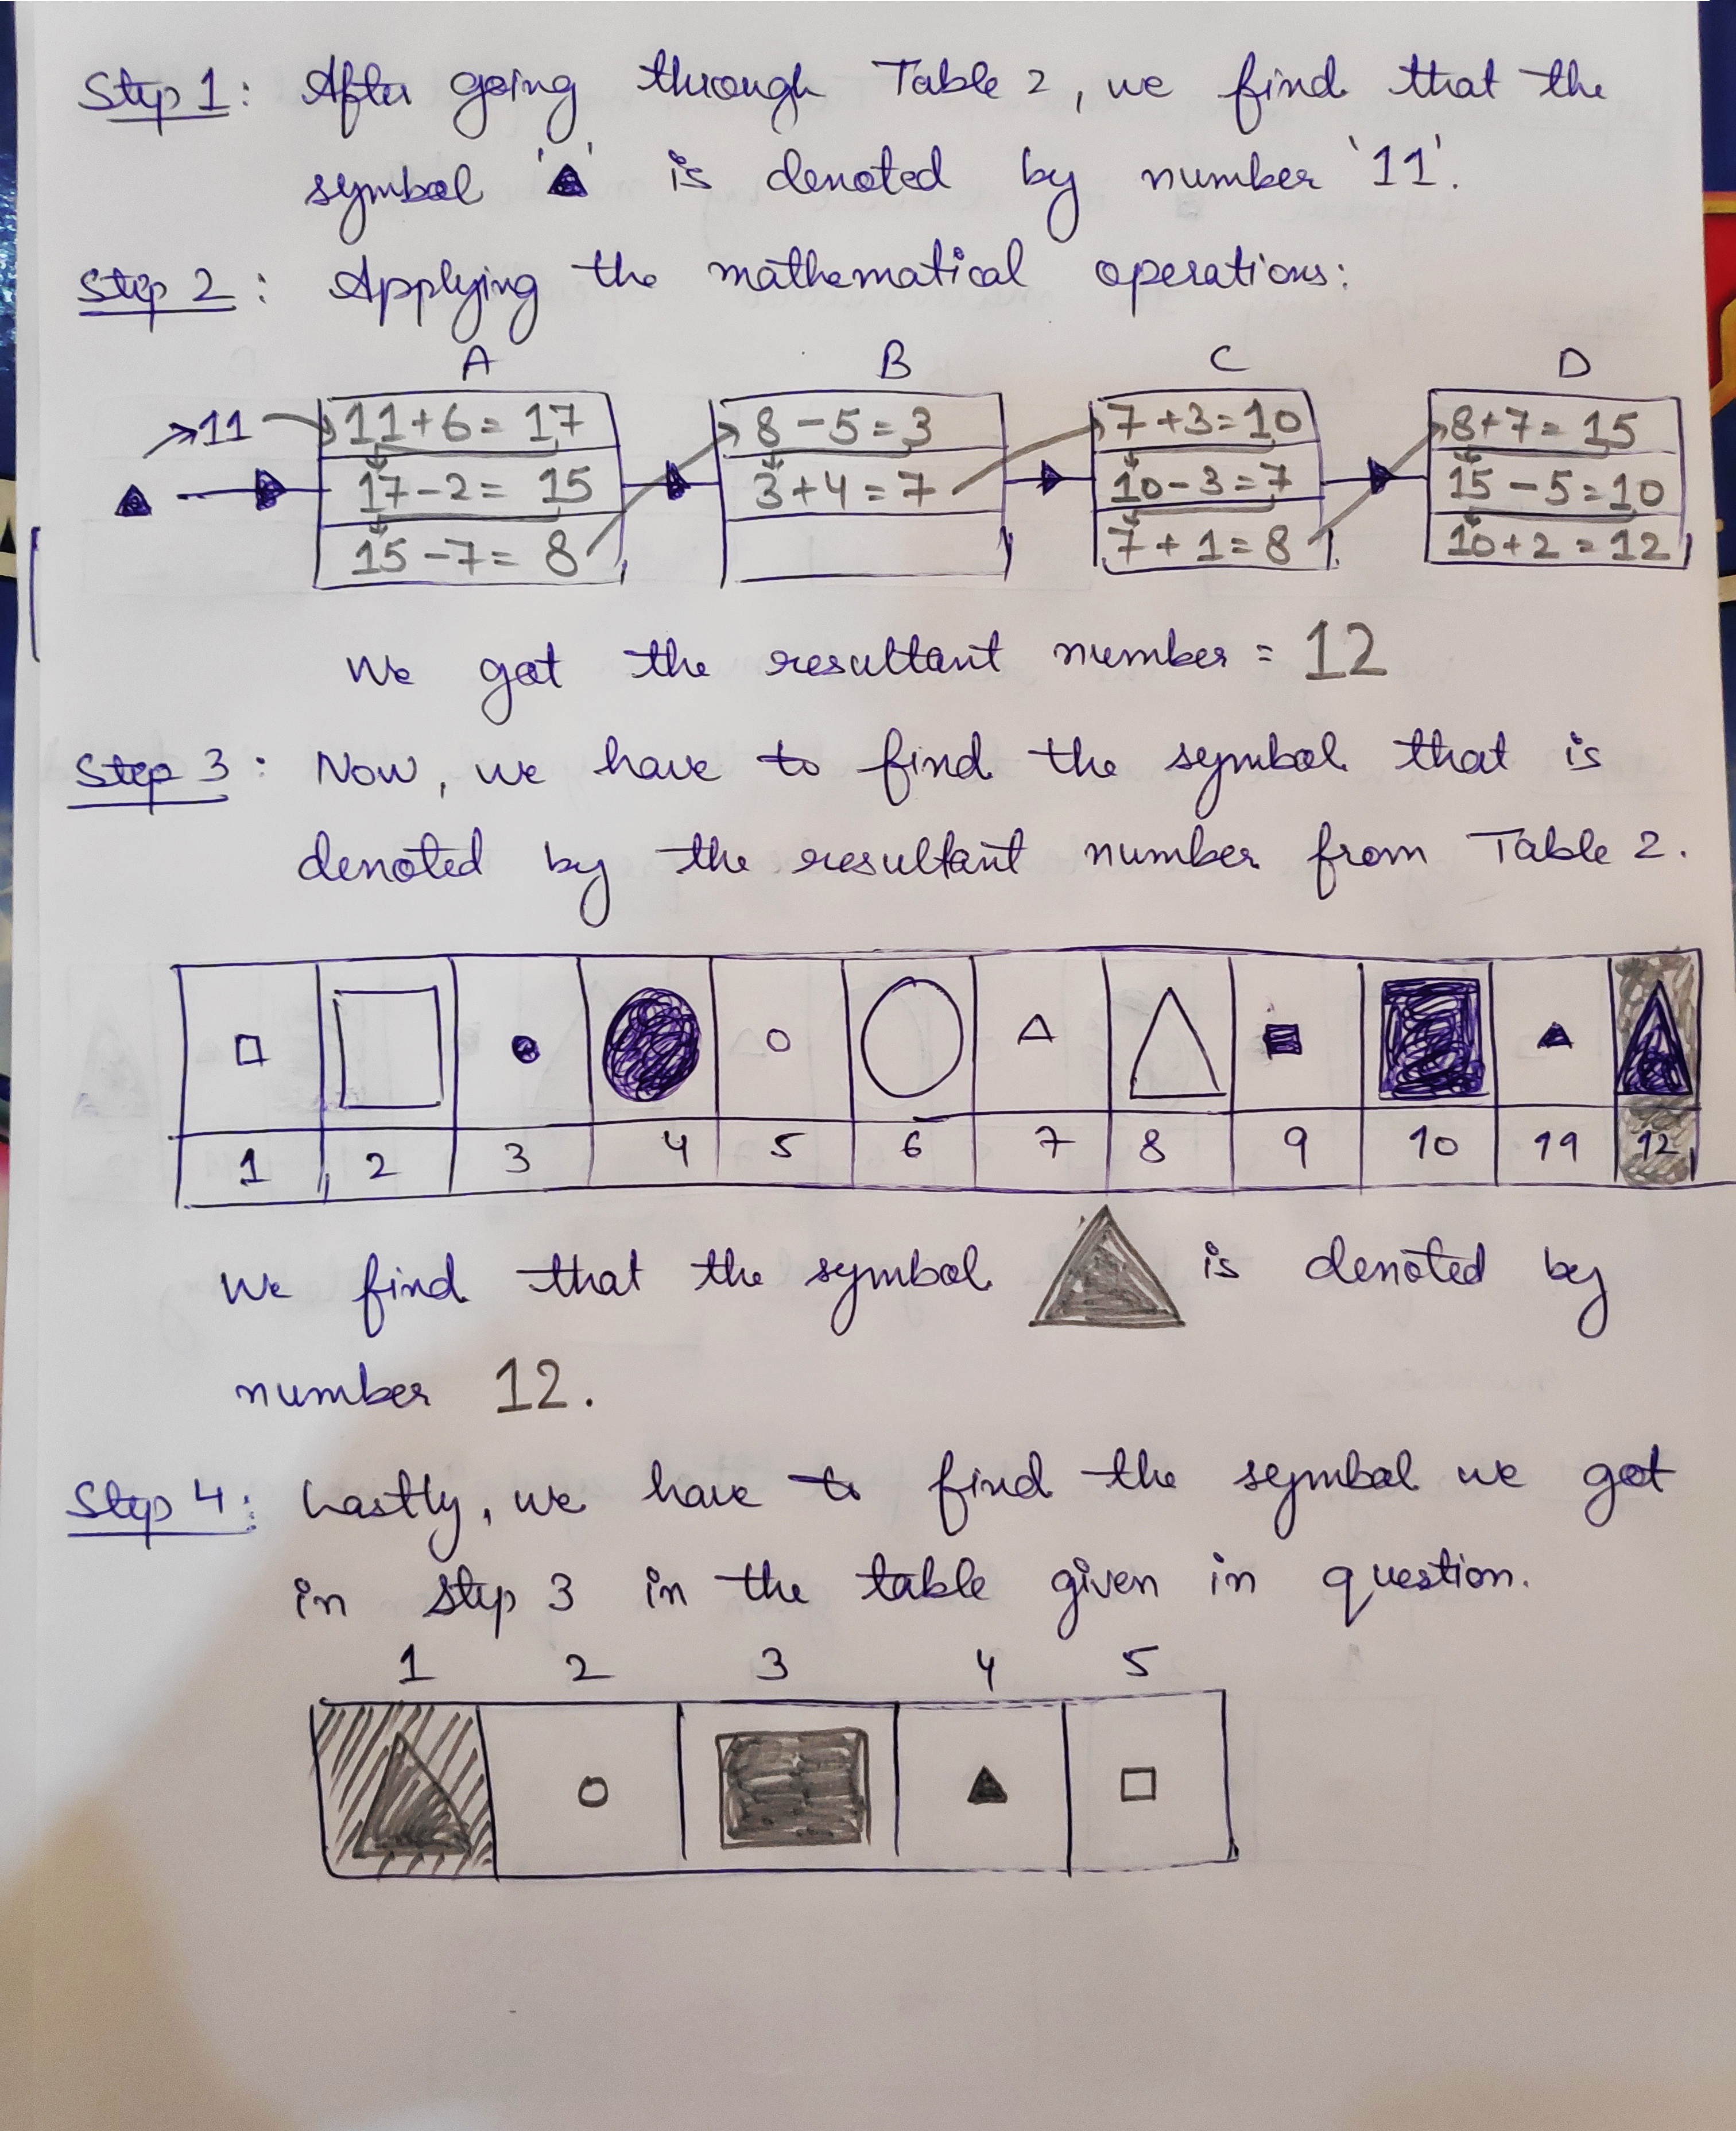 Step 1: After going through Table 2, we find that the
symbol '▲' is denoted by number '11'.
Step 2: Applying the mathematical operations:
A B C D
11 11+6=17 8-5=3 7+3=10 8+7=15
17-2=15 3+4=7 10-3=7 15-5=10
15-7=8 7+1=8 10+2=12
We got the resultant number = 12
Step 3: Now, we have to find the symbol that is
denoted by the resultant number from Table 2.
1 2 3 4 5 6 7 8 9 10 11 12
We find that the symbol ▲ is denoted by
number 12.
Step 4: Lastly, we have to find the symbol we got
in step 3 in the table given in question.
1 2 3 4 5